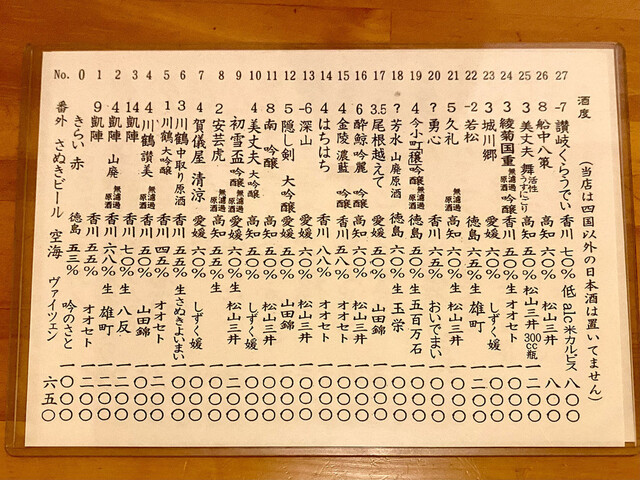 酒度 (当店は四国以外の日本酒は置いてません)
27 -7 讃岐くらうでぃ 香川 七〇% 低alc米カルピス 八〇〇
26 8 船中八策 高知 六〇% 松山三井 八〇〇
25 3 美丈夫 舞 活性うすにごり 高知 五〇% 松山三井 300cc瓶 一二〇〇
24 3 綾菊国重 無濾過原酒 吟醸 香川 五〇% 生 オオセト 一〇〇〇
23 3 城川郷 愛媛 六〇% しずく媛 一〇〇〇
22 -2 若松 徳島 六五% 生 雄町 一二〇〇
21 5 久礼 無濾過原酒 高知 六〇% 生 松山三井 一〇〇〇
20 ? 勇心 香川 七〇% おいでまい 一〇〇〇
19 4 今小町 穰 吟醸 無濾過原酒 徳島 五〇% 生 五百万石 一〇〇〇
18 ? 芳水 山廃原酒 徳島 六〇% 生 玉栄 一〇〇〇
17 3.5 尾根越えて 愛媛 六〇% 山田錦 一〇〇〇
16 6 酔鯨吟麗 吟醸 高知 五〇% 松山三井 一〇〇〇
15 4 金陵 濃藍 吟醸 香川 五八% オオセト 一〇〇〇
14 4 はちはち 香川 八八% オオセト 一〇〇〇
13 -6 深山 愛媛 六〇% 松山三井 一〇〇〇
12 5 隠し剣 大吟醸 愛媛 五〇% 山田錦 一〇〇〇
11 8 南 吟醸 高知 五〇% 松山三井 一〇〇〇
10 4 美丈夫 大吟醸 高知 五〇% 松山三井 一〇〇〇
9 初雪盃 吟醸 無濾過原酒 愛媛 五〇% 生 しずく媛 一二〇〇
8 2 安芸虎 無濾過原酒 高知 五五% 生 松山三井 一〇〇〇
7 4 賀儀屋 清涼 愛媛 六〇% しずく媛 一〇〇〇
6 3 川鶴 中取り原酒 香川 五五% 生 さぬきよいまい 一〇〇〇
5 1 川鶴 大吟醸 無濾過原酒 香川 四五% オオセト 一二〇〇
4 4 川鶴 讃美 無濾過原酒 香川 五〇% 山田錦 一〇〇〇
3 14 凱陣 香川 七〇% 生 八反 一二〇〇
2 4 凱陣 山廃 無濾過原酒 香川 六八% 生 雄町 一二〇〇
1 9 凱陣 香川 五五% オオセト 一二〇〇
No. 0 きらい 赤 徳島 五三% 吟のさと 一〇〇〇
番外 さぬきビール 空海 ヴァイツェン 六五〇